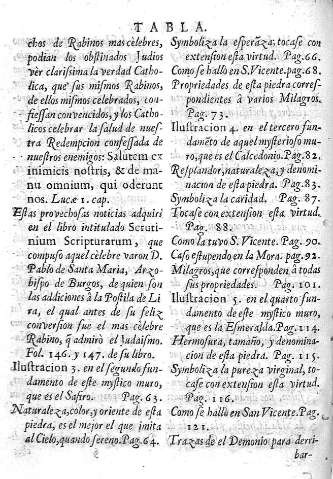 TABLA.
chos de Rabinos mas cèlebres,
podian los obstinados Judios
vèr clarissima la verdad Catho-
lica, que sùs mismos Rabinos,
de ellos mismos celebrados, con-
fiessan convencidos, y los Catho-
licos celebrar la salud de nues-
tra Redempcion confessada de
nuestros enemigos: Salutem ex
inimicis nostris, & de ma-
nu omnium, qui oderunt
nos. Lucæ 1. cap.
Estas provechosas noticias adquiri
en el libro intitulado Scruti-
nium Scripturarum, que
compuso aquel cèlebre varon D.
Pablo de Santa Maria, Arzo-
bispo de Burgos, de quien son
las addiciones à la Postila de Li-
ra, el qual antes de su feliz
conversion fue el mas cèlebre
Rabino, q̃ admirò el Judaismo.
Fol. 146. y 147. de su libro.
Ilustracion 3. en el segundo fun-
damento de este mystico muro,
que es el Safiro. Pag. 63.
Naturaleza, color, y oriente de esta
piedra, es el mejor el que imita
al Cielo, quando sereno. Pag. 64.
Symboliza la esperãza, tocase con
extension esta virtud. Pag. 66.
Como se hallò en S. Vicente. pag. 68.
Propriedades de esta piedra corres-
pondientes à varios Milagros.
Pag. 73.
Ilustracion 4. en el tercero funda-
mẽto de aquel mysterioso mu-
ro, que es el Calcedonio. Pag. 82.
Resplandor, naturaleza, y denomi-
nacion de esta piedra. Pag. 83.
Symboliza la caridad. Pag. 87.
Tocase con extension esta virtud.
Pag. 88.
Como la tuvo S. Vicente. Pag. 90.
Caso estupendo en la Mora. pag. 92.
Milagros, que corresponden à todas
sus propriedades. Pag. 101.
Ilustracion 5. en el quarto fun-
damento de este mystico muro,
que es la Esmeralda. Pag. 114.
Hermosura, tamaño, y denomina-
cion de esta piedra. Pag. 115.
Symboliza la pureza virginal, to-
case con extension esta virtud.
Pag. 116.
Como se hallò en San Vicente. Pag.
121.
Trazas de el Demonio para derri-
bar-